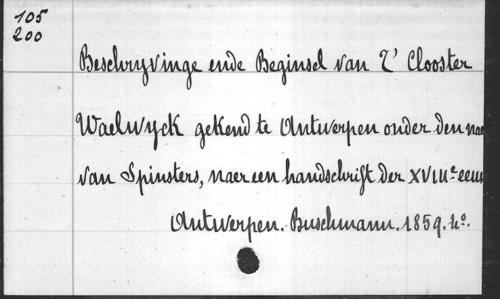 105
200
Beschryvinge ende Beginsel van T' Clooster
Waelwyck gekend te Antwerpen onder den
van Spinsters, naer een handschrift der XVIIIe eeuw
Antwerpen. Buschmann. 1859. 4o.